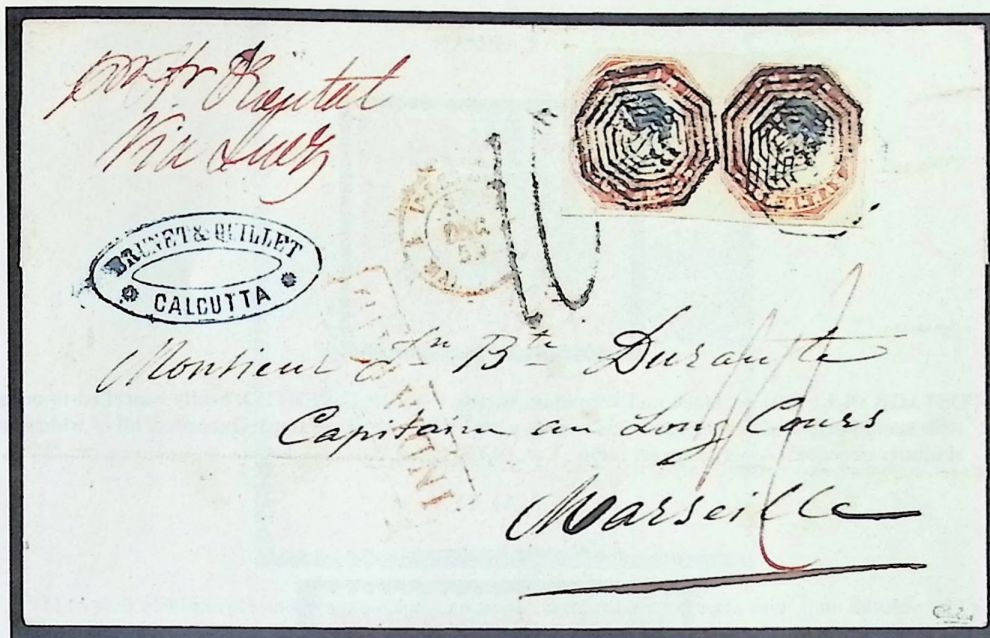 Via Suez
BRUNET & QUILLET
CALCUTTA
DEC
INDIA
10
Monsieur Jn Bte Durante
Capitaine au Long Cours
Marseille